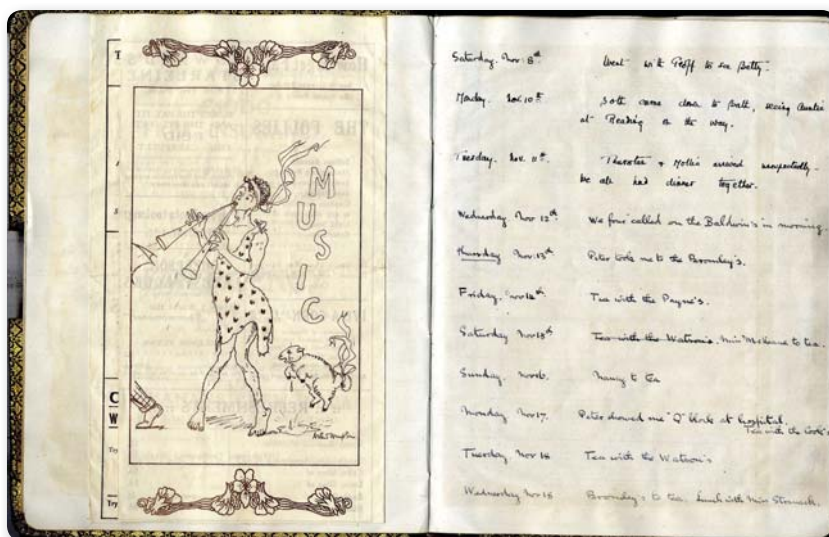 T
MUSIC
C
W
Try
Try
Saturday. Nov. 8th Went with Geoff to see Betty.
Monday. Nov. 10th Both came down to Bath, seeing Auntie
at Reading on the way.
Tuesday. Nov. 11th. & Mollie arrived unexpectedly.
We all had dinner together.
Wednesday Nov 12th. We four called on the Baldwin's in morning.
Thursday Nov. 13th Peter took me to the Bromley's.
Friday. Nov 14th. Tea with the Payne's.
Saturday Nov 15th Tea with the Watson's. Miss to tea.
Sunday. Nov 16. Nancy to tea
Monday Nov 17. Peter showed me "Q" block at hospital.
Tea with the Cook's
Tuesday Nov 18 Tea with the Watson's
Wednesday Nov 18 Bromley's to tea. Lunch with Miss